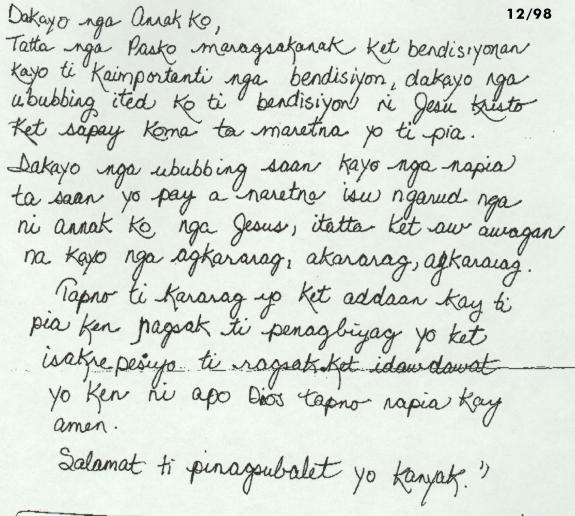 12/98
Dakayo nga Annak ko,
Tatta nga Pasko maragsakanak ket bendisiyonan
kayo ti kaimportanti nga bendisiyon, dakayo nga
ububbing ited ko ti bendisiyon ni Jesu Kristo
ket sapay koma ta maretna yo ti pia.
Dakayo nga ububbing saan kayo nga napia
ta saan yo pay a naretna isu ngarud nga
ni annak ko nga Jesus, itatta ket aw awagan
na kayo nga agkararag, akararag, agkararag.
Tapno ti kararag yo ket addaan kay ti
pia ken ragsak ti penagbiyag yo ket
isakrepesiyo ti ragsak ket idawdawat
yo ken ni apo Dios tapno napia kay
amen.
Salamat ti pinagsubalet yo kanyak."